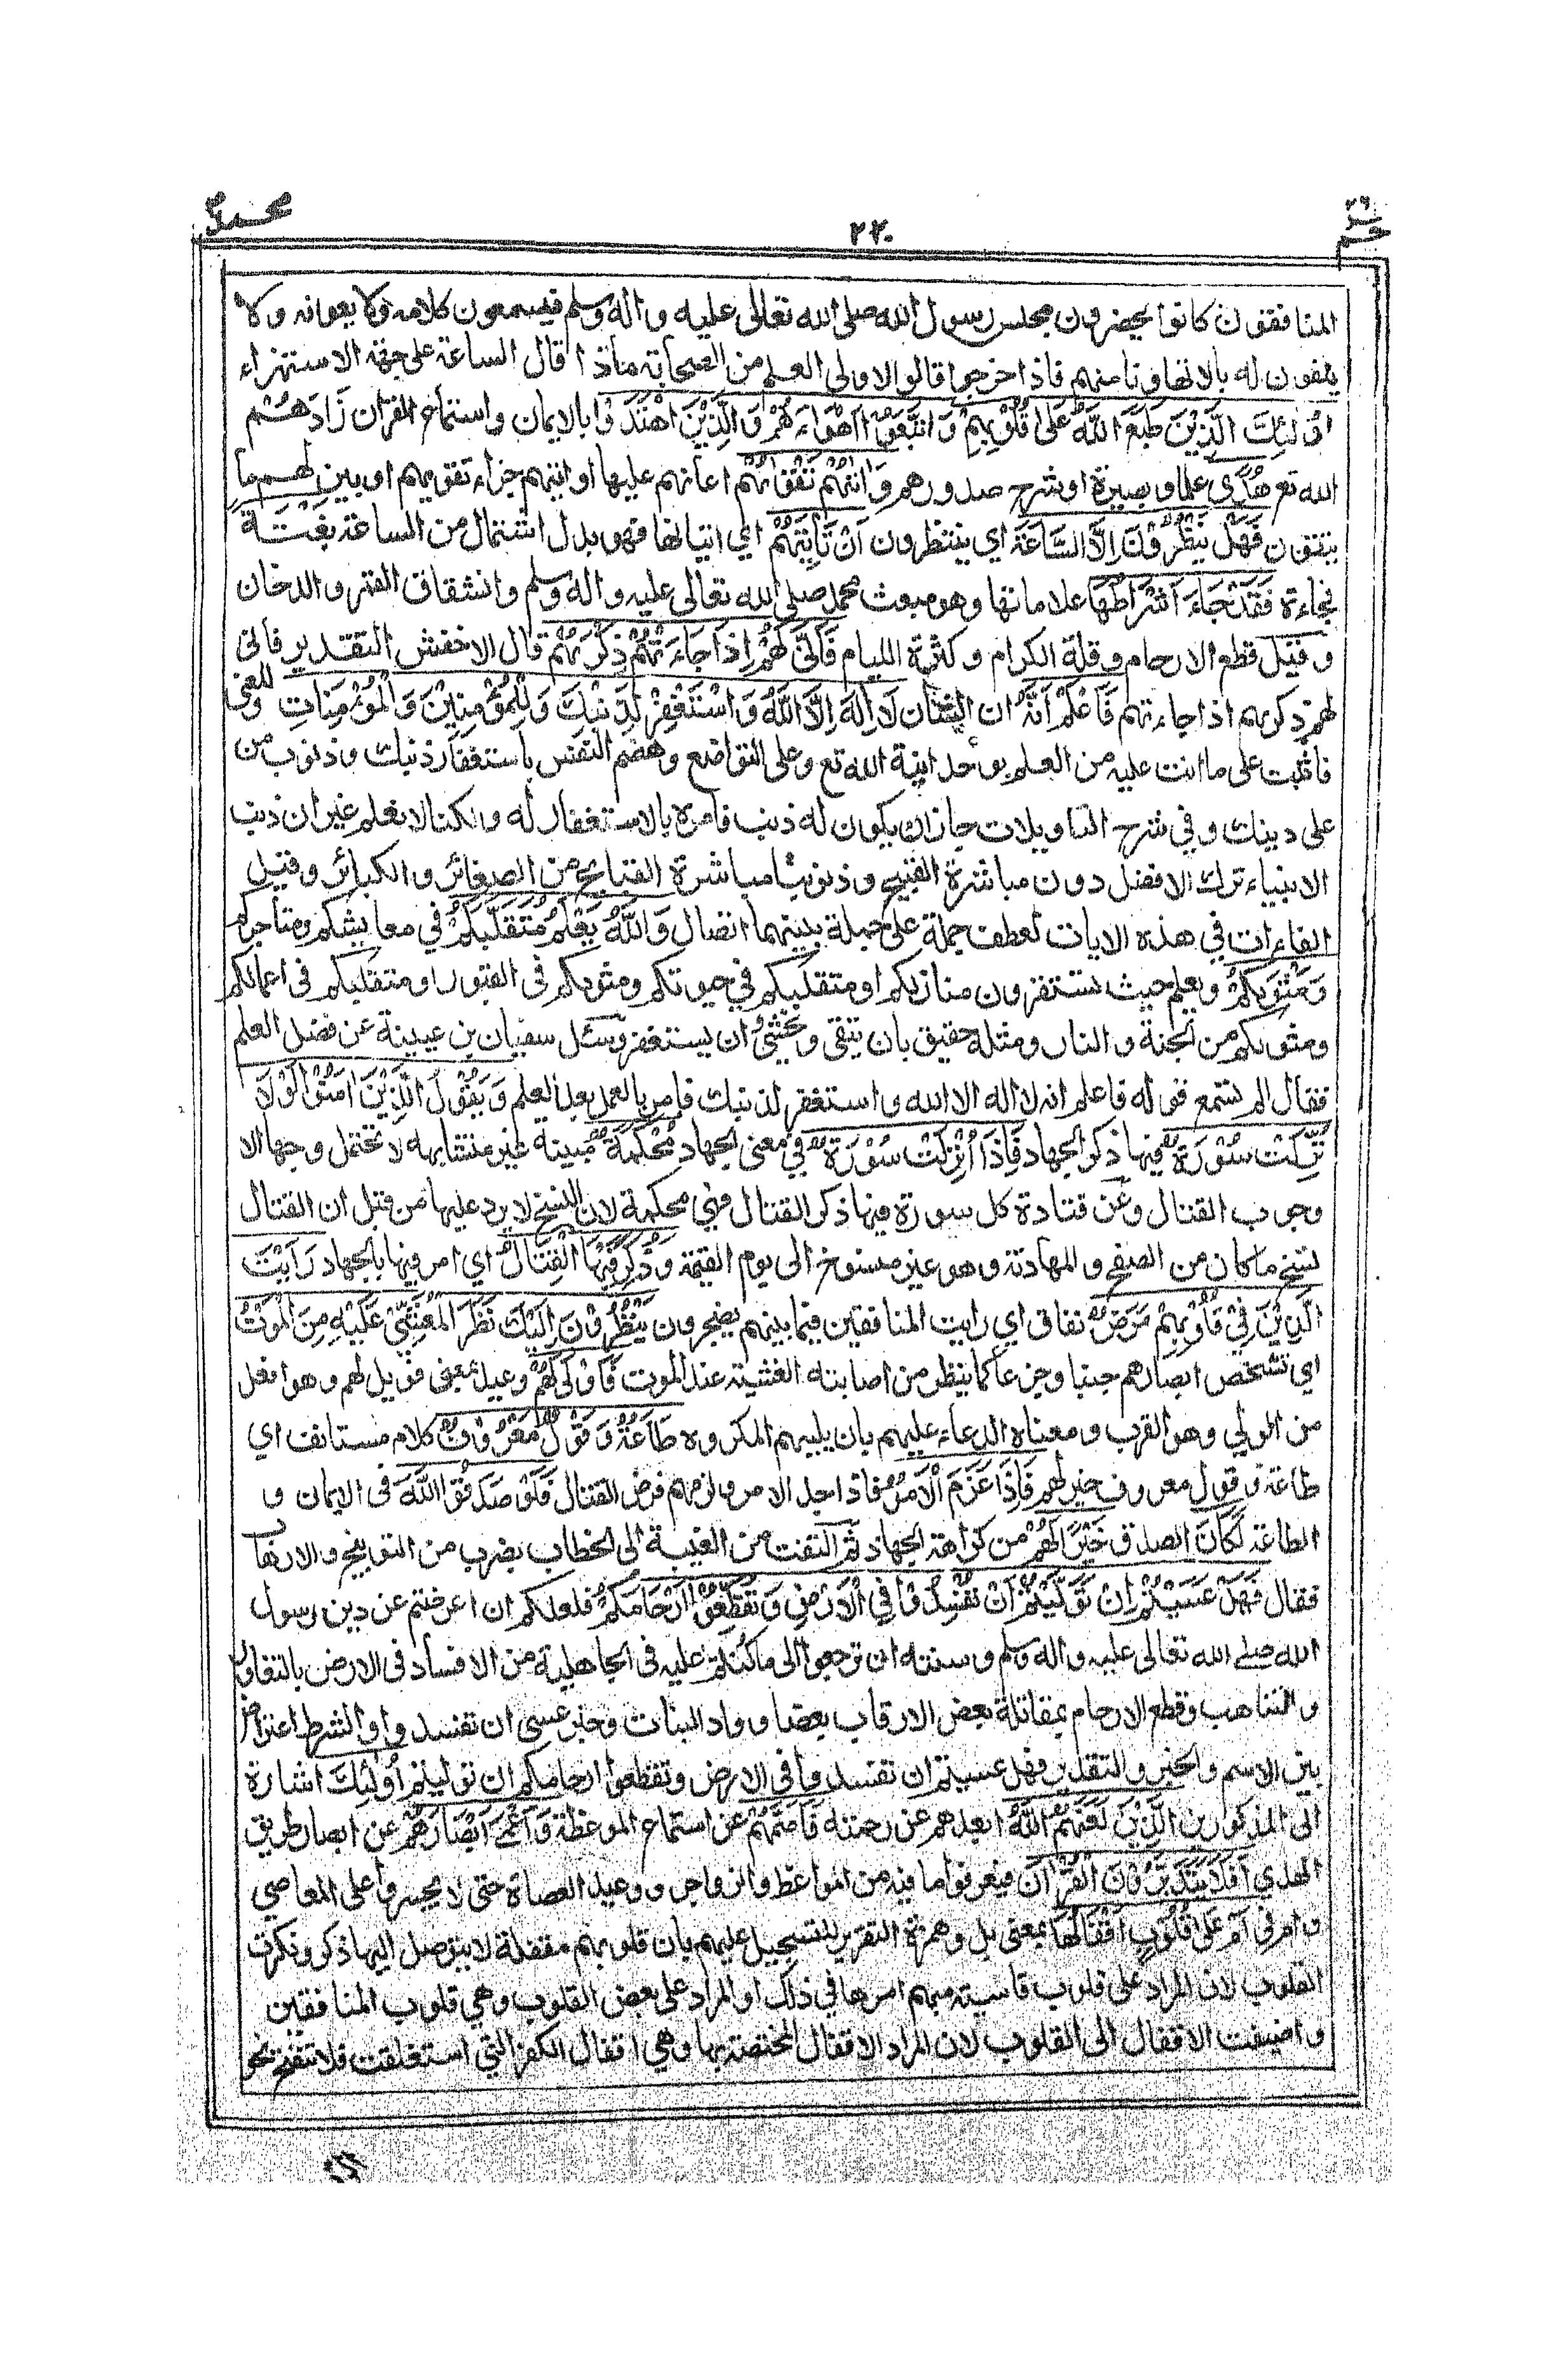 حم ٢٦
٢٢٠
محمد
المنافقون كانوا يحضرون مجلس رسول الله صلى الله تعالى عليه واله وسلم فيسمعون كلامه ولا يعوانه ولا
يلقون له بالا تهاونا منهم فاذا خرجوا قالوا لاولى العلم من الصحابة ماذا قال الساعة على جهة الاستهزاء
اُولٰئِكَ الَّذِيْنَ طَبَعَ اللهُ عَلٰى قُلُوْبِهِمْ وَاتَّبَعُوْا اَهْوَاءَهُمْ وَالَّذِيْنَ اهْتَدَوْا بالايمان واستماع القران زَادَهُمْ
الله تع هُدًى علما وبصيرة او شرح صدورهم وَاٰتٰهُمْ تَقْوٰىهُمْ اعانهم عليها او اتٰهم جزاء تقوٰيهم او بين لهم ما
يتقون فَهَلْ يَنْظُرُوْنَ اِلَّا السَّاعَةَ اي ينتظرون اَنْ تَأْتِيَهُمْ اي اتيانها فهو بدل اشتمال من الساعة بَغْتَةً
فجاءة فَقَدْ جَاءَ اَشْرَاطُهَا علاماتها وهو مبعث محمد صلى الله تعالى عليه واله وسلم وانشقاق القمر والدخان
وقيل قطع الارحام وقلة الكرام وكثرة الليام فَاَنّٰى لَهُمْ اِذَا جَاءَتْهُمْ ذِكْرٰىهُمْ قال الاخفش التقدير فانّى
لهم ذكرٰيهم اذا جاءتهم فَاعْلَمْ اَنَّهُ ان الشان لَا اِلٰهَ اِلَّا اللهُ وَاسْتَغْفِرْ لِذَنْبِكَ وَلِلْمُؤْمِنِيْنَ وَالْمُؤْمِنَاتِ والمعنى
فاثبت على ما انت عليه من العلم بوحدانية الله تع وعلى التواضع وهضم النفس باستغفار ذنبك وذنوب من
على دينك وفي شرح التاويلات جاز ان يكون له ذنب فامره بالاستغفار له ولكنا لا نعلم غير ان ذنب
الانبياء ترك الافضل دون مباشرة القبيح وذنوبنا مباشرة القبايح من الصغائر والكبائر وقيل
الفاءات في هذه الايات لعطف جملة على جملة بينهما اتصال وَاللهُ يَعْلَمُ مُتَقَلَّبَكُمْ في معايشكم ومتاجركم
وَمَثْوٰىكُمْ ويعلم حيث تستقرون منازلكم او متقلبكم في حيوتكم ومثويكم في القبور او متقلبكم في اعمالكم
ومثويكم من الجنة والنار ومثله حقيق بان يتقى ويخشى وان يستغفر وسئل سفيان بن عيينة عن فضل العلم
فقال الم تسمع قوله فاعلم انه لا اله الا الله واستغفر لذنبك فامر بالعمل بعد العلم وَيَقُوْلُ الَّذِيْنَ اٰمَنُوْا لَوْلَا
نُزِّلَتْ سُوْرَةٌ فيها ذكر الجهاد فَاِذَا اُنْزِلَتْ سُوْرَةٌ في معنى الجهاد مُحْكَمَةٌ مبينة غير متشابهة لا تحتمل وجها الا
وجوب القتال وعن قتادة كل سورة فيها ذكر القتال فهي محكمة لان النسخ لا يرد عليها من قبل ان القتال
نسخ ما كان من الصفح والمهادنة وهو غير منسوخ الى يوم القيمة وَذُكِرَ فِيْهَا الْقِتَالُ اي امر فيها بالجهاد رَاَيْتَ
الَّذِيْنَ فِيْ قُلُوْبِهِمْ مَرَضٌ نفاق اي رايت المنافقين فيما بينهم يضجرون يَنْظُرُوْنَ اِلَيْكَ نَظَرَ الْمَغْشِيِّ عَلَيْهِ مِنَ الْمَوْتِ
اي تشخص ابصارهم جبنا وجزعا كما ينظر من اصابته الغشية عند الموت فَاَوْلٰى لَهُمْ وعيد بمعنى فويل لهم وهو افعل
من الولي وهو القرب ومعناه الدعاء عليهم بان يليهم المكروه طَاعَةٌ وَقَوْلٌ مَعْرُوْفٌ كلام مستانف اي
طاعة وقول معروف خير لهم فَاِذَا عَزَمَ الْاَمْرُ فاذا جد الامر ولزمهم فرض القتال فَلَوْ صَدَقُوا اللهَ في الايمان و
الطاعة لَكَانَ الصدق خَيْرًا لَهُمْ من كراهة الجهاد ثم التفت من الغيبة الى الخطاب بضرب من التوبيخ والارهاب
فقال فَهَلْ عَسَيْتُمْ اِنْ تَوَلَّيْتُمْ اَنْ تُفْسِدُوْا فِي الْاَرْضِ وَتُقَطِّعُوْا اَرْحَامَكُمْ فلعلكم ان اعرضتم عن دين رسول
الله صلى الله تعالى عليه واله وسلم وسنته ان ترجعوا الى ما كنتم عليه في الجاهلية من الافساد في الارض بالتغاور
والتناهب وقطع الارحام بمقاتلة بعض الارقاب بعضا وواد البنات وخبر عسى ان تفسدوا والشرط اعتراض
بين الاسم والخبر والتقدير فهل عسيتم ان تفسدوا في الارض وتقطعوا ارحامكم ان توليتم اُولٰئِكَ اشارة
الى المذكورين الَّذِيْنَ لَعَنَهُمُ اللهُ ابعدهم عن رحمته فَاَصَمَّهُمْ عن استماع الموعظة وَاَعْمٰى اَبْصَارَهُمْ عن ابصار طريق
الهدى اَفَلَا يَتَدَبَّرُوْنَ الْقُرْاٰنَ فيعرفوا ما فيه من المواعظ والزواجر ووعيد العصاة حتى لا يجسروا على المعاصي
وام في اَمْ عَلٰى قُلُوْبٍ اَقْفَالُهَا بمعنى بل وهمزة التقرير للتسجيل عليهم بان قلوبهم مقفلة لا يتوصل اليها ذكر ونكرت
القلوب لان المراد على قلوب قاسية مبهم امرها في ذلك او المراد على بعض القلوب وهي قلوب المنافقين
واضيفت الاقفال الى القلوب لان المراد الاقفال المختصة بها وهي اقفال الكفر التي استغلقت فلا تنفتح نحو